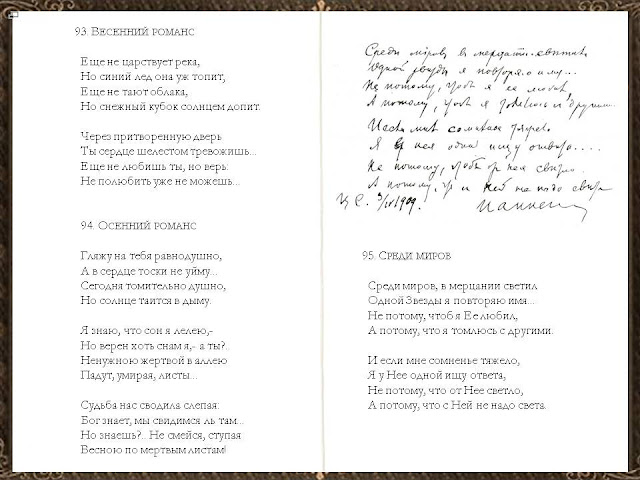 93. Весенний романс
Еще не царствует река,
Но синий лед она уж топит;
Еще не тают облака,
Но снежный кубок солнцем допит.
Через притворенную дверь
Ты сердце шелестом тревожишь...
Еще не любишь ты, но верь:
Не полюбить уже не можешь...
94. Осенний романс
Гляжу на тебя равнодушно,
А в сердце тоски не уйму...
Сегодня томительно душно,
Но солнце таится в дыму.
Я знаю, что сон я лелею,-
Но верен хоть снам я,- а ты?..
Ненужною жертвой в аллею
Падут, умирая, листы...
Судьба нас сводила слепая:
Бог знает, мы свидимся ль там...
Но знаешь?.. Не смейся, ступая
Весною по мертвым листам!
Среди миров, в мерцании светил
Одной звезды я повторяю имя...
Не потому, чтоб я ее любил,
А потому, что я томлюсь с другими.
И если мне сомненье тяжело
Я у нея одной ищу ответа....
Не потому, что от нея светло
А потому, что с ней не надо света
Ц. С. 3/IV 1909.
95. Среди миров
Среди миров, в мерцании светил
Одной Звезды я повторяю имя...
Не потому, чтоб я Ее любил,
А потому, что я томлюсь с другими.
И если мне сомненье тяжело,
Я у Нее одной ищу ответа,
Не потому, что от Нее светло,
А потому, что с Ней не надо света.